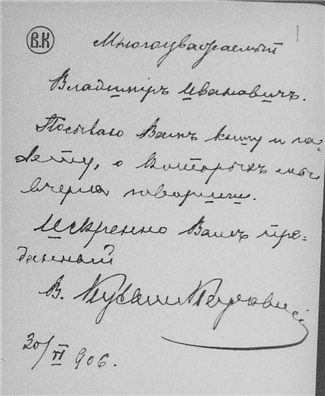 В.К
Многоуважаемый
Владимiръ Ивановичъ.
Посылаю Вамъ книгу и га-
зету, о которыхъ мы
вчера говорили.
Искренно Вамъ пре-
данный
В.
20/VI 906.